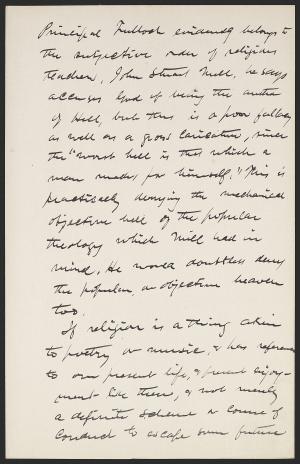 Principal Tulloch evidently belongs to
the subjective order of religious
teachers. John Stuart Mill, he says
accuses God of being the author
of Hell, but this is a poor fallacy
as well as a gross caricature, since
the "worst hell is that which a
man makes for himself." This is
practically denying the mechanical
objective hell of the popular
theology which Mill had in
mind. He would doubtless deny
the popular, or objective heaven
too.
If religion is a thing akin
to poetry or music, & has reference
to our present life, & present enjoy-
ment like them, & not merely
a definite scheme or course of
conduct to escape some future